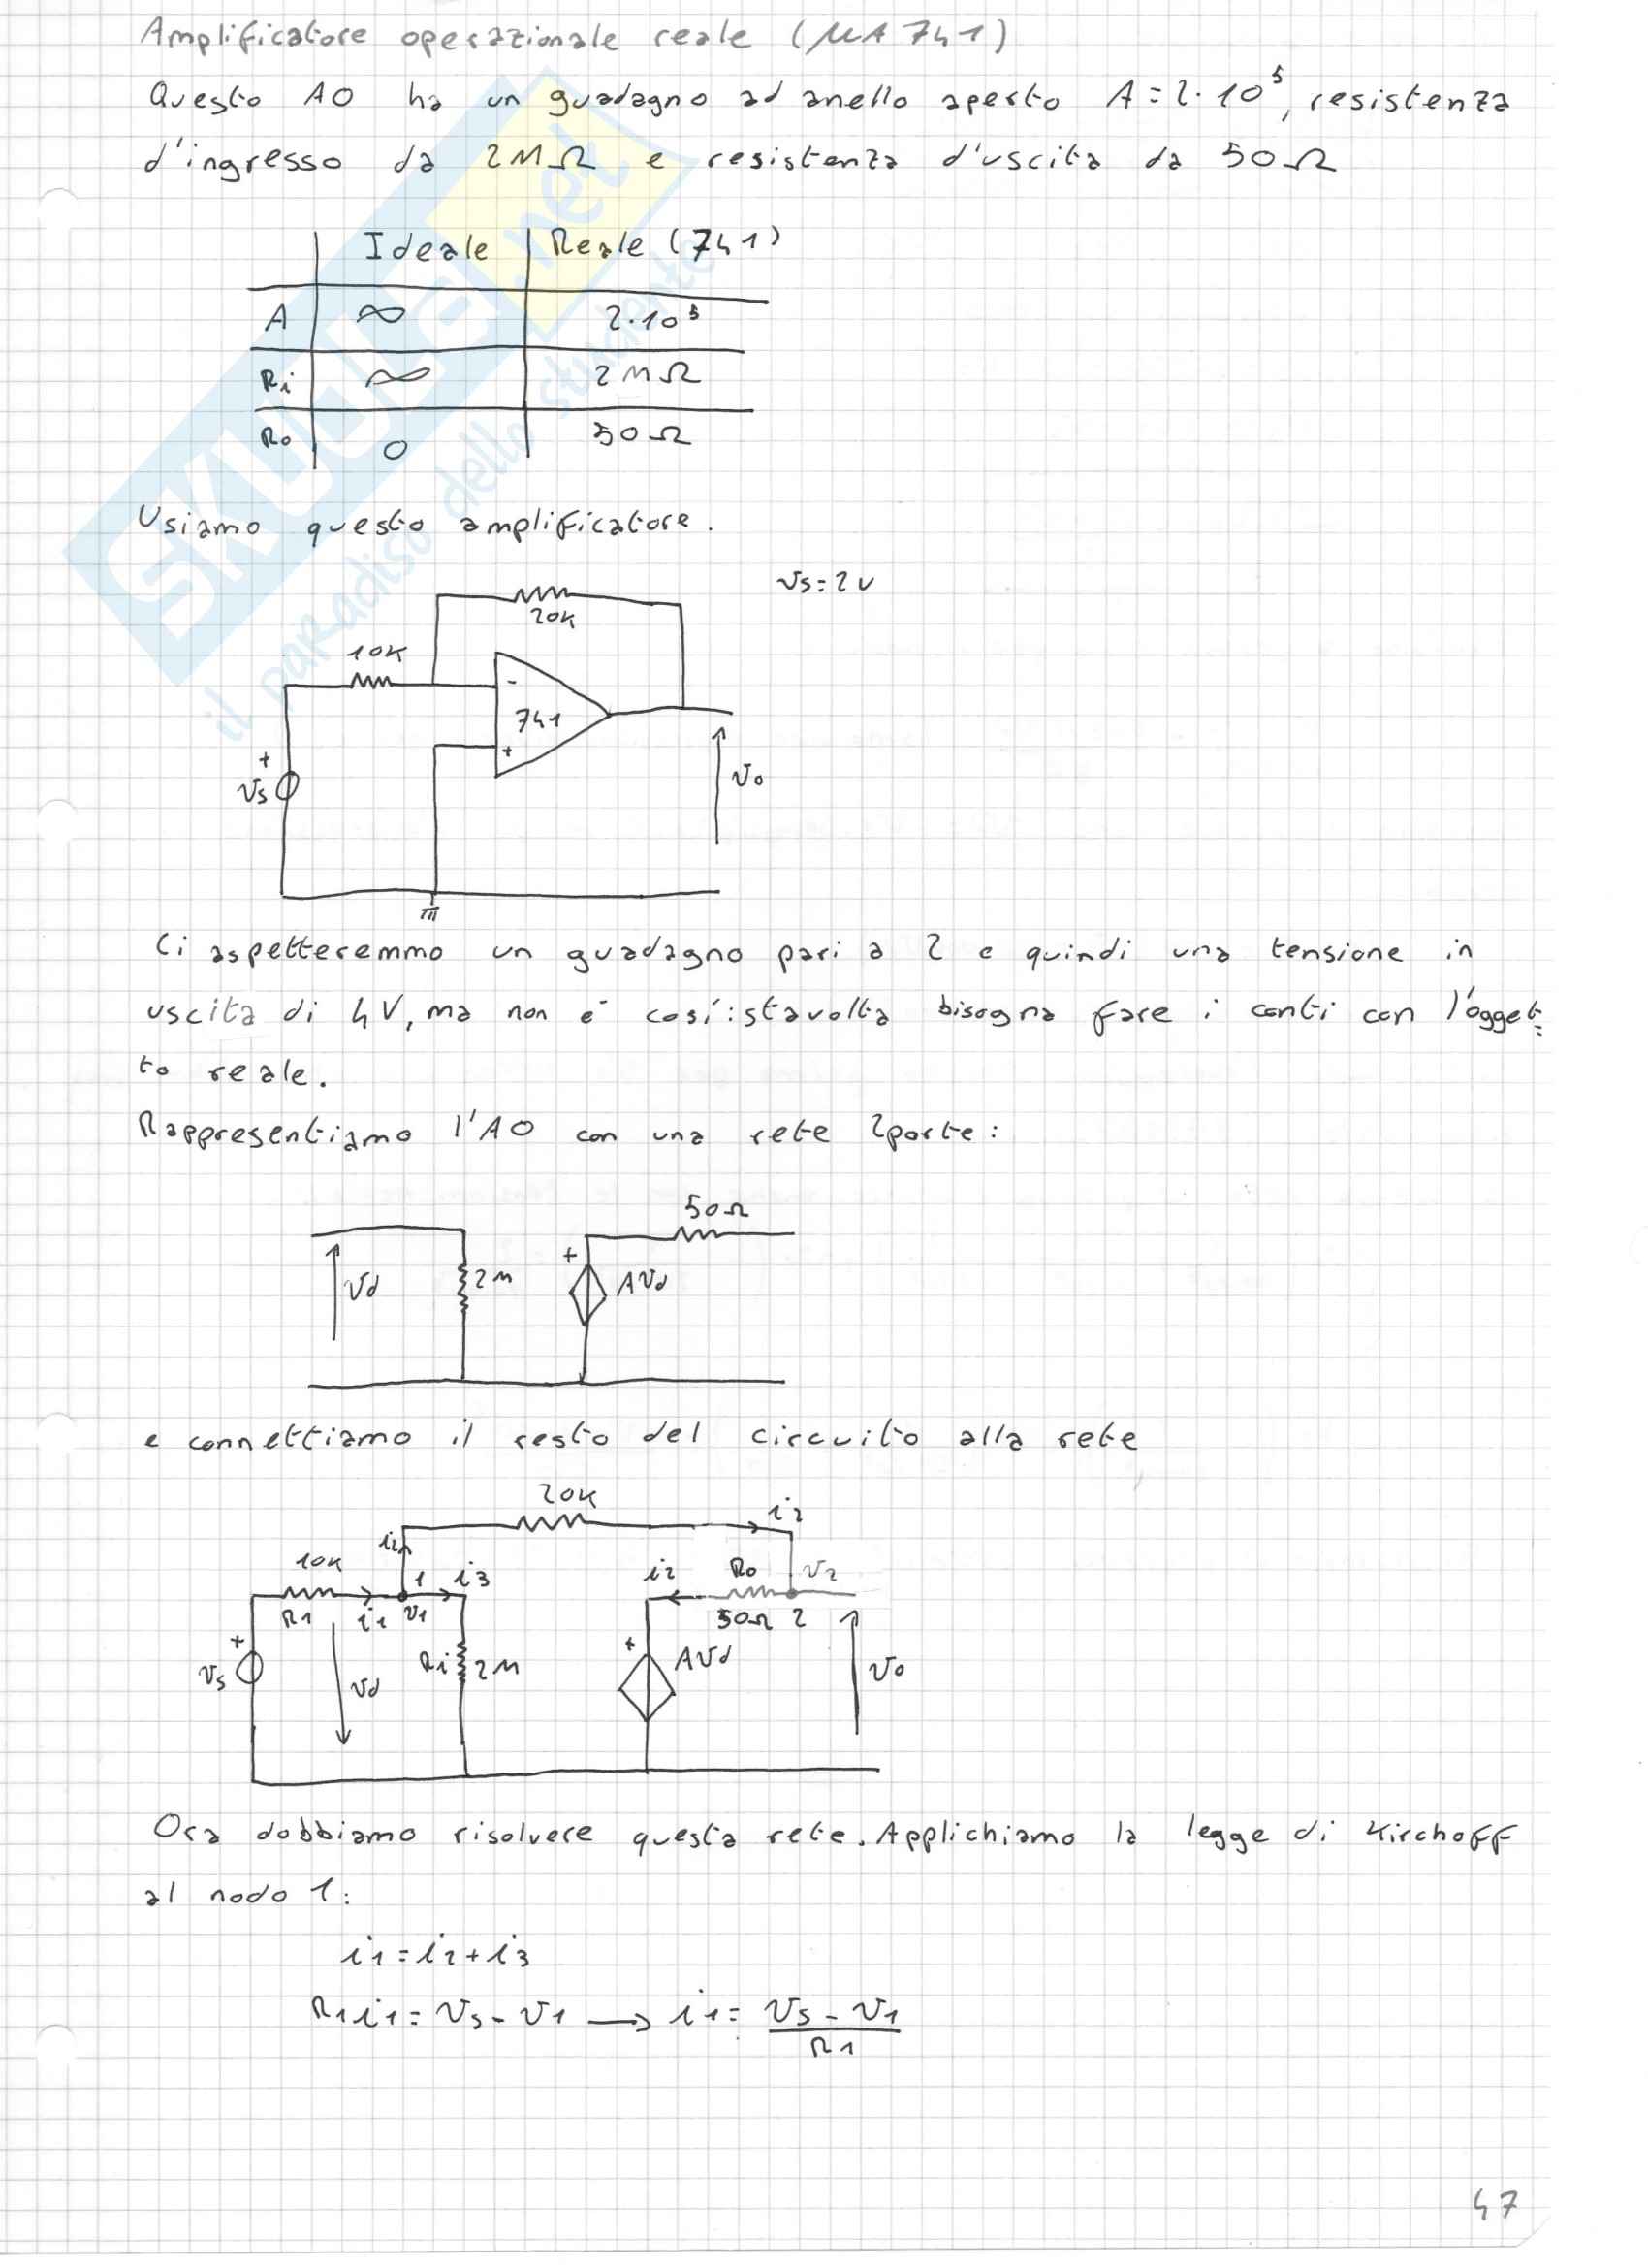 Amplificatore operazionale reale (μA 741)
Questo AO ha un guadagno ad anello aperto A = 2·10⁵, resistenza
d'ingresso da 2MΩ e resistenza d'uscita da 50Ω
Ideale Reale (741)
A ∞ 2·10⁵
Ri ∞ 2MΩ
Ro 0 50Ω
Usiamo questo amplificatore.
SKUOLA.net
il paradiso dello studente
vs=2V
20K
10K
-
741
+
+
vs
vo
Ci aspetteremmo un guadagno pari a 2 e quindi una tensione in
uscita di 4V, ma non è così: stavolta bisogna fare i conti con l'ogget=
to reale.
Rappresentiamo l'AO con una rete 2porte:
50Ω
+
vd 2M AVd
e connettiamo il resto del circuito alla rete
20K
i2
i2
10K 1 i3 i2 Ro v2
R1 i1 v1 50Ω 2
+ +
vs vd Ri 2M AVd vo
Ora dobbiamo risolvere questa rete. Applichiamo la legge di Kirchoff
al nodo 1:
i1 = i2 + i3
R1i1 = vs - v1 → i1 = vs - v1 / R1
47